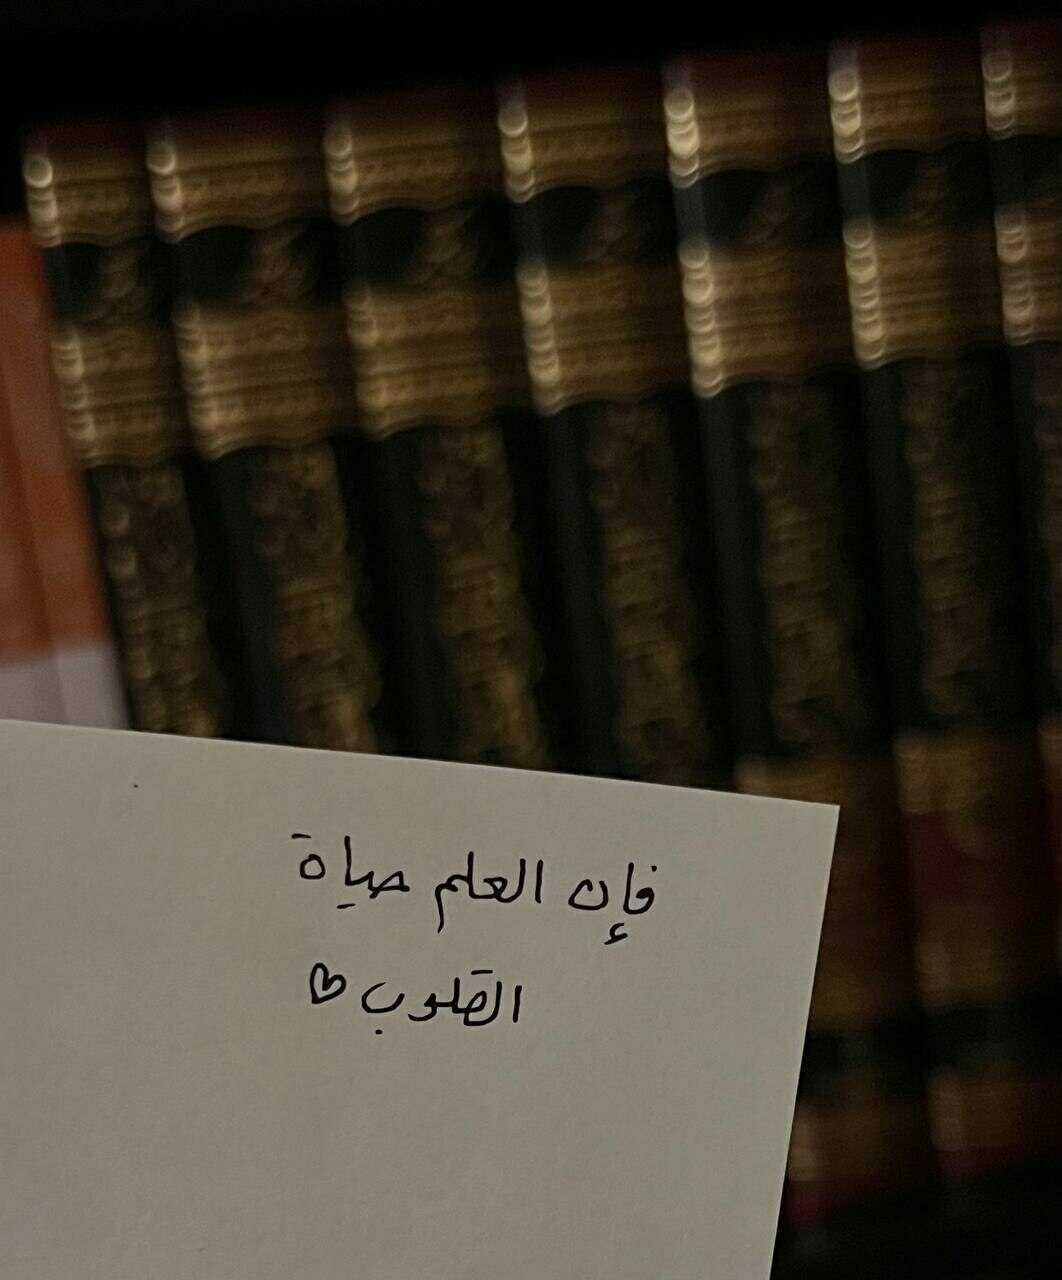 فإن العلم حياة
القلوب ♡